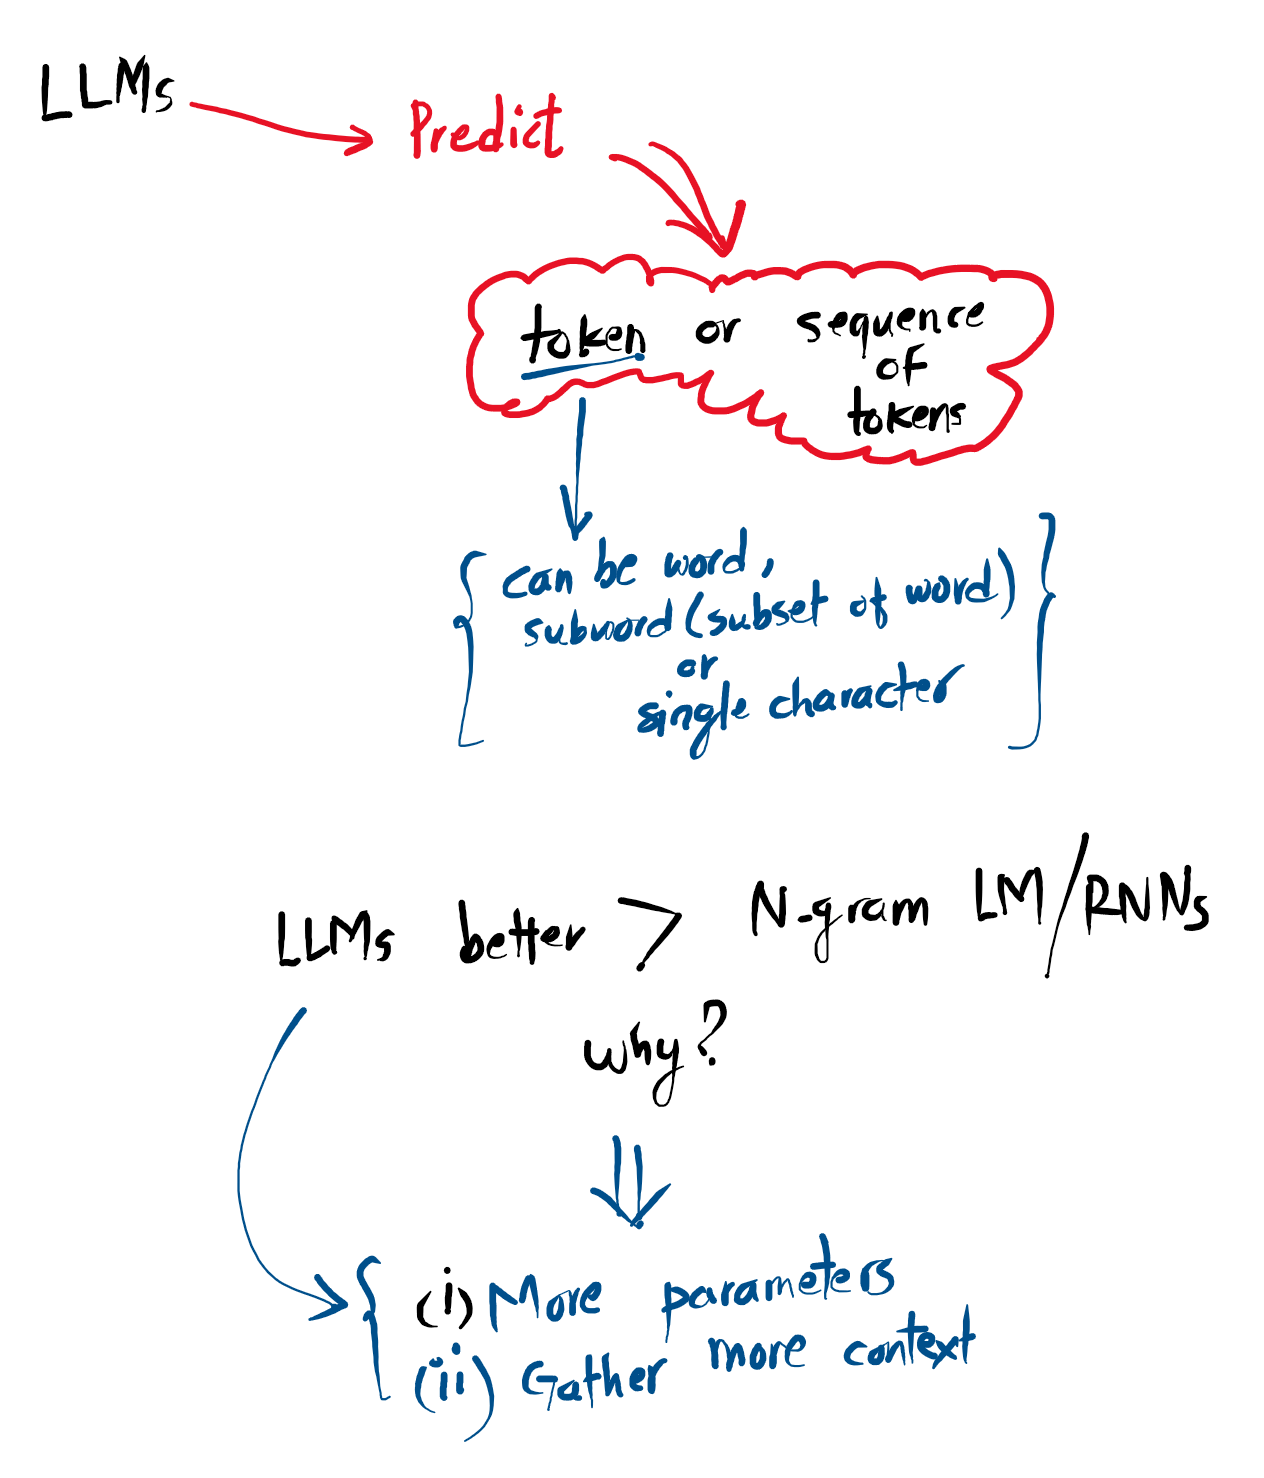 LLMs
Predict
token or sequence
of
tokens
can be word,
subword (subset of word)
or
single character
LLMs better > N-gram LM/RNNs
why?
(i) More parameters
(ii) Gather more context